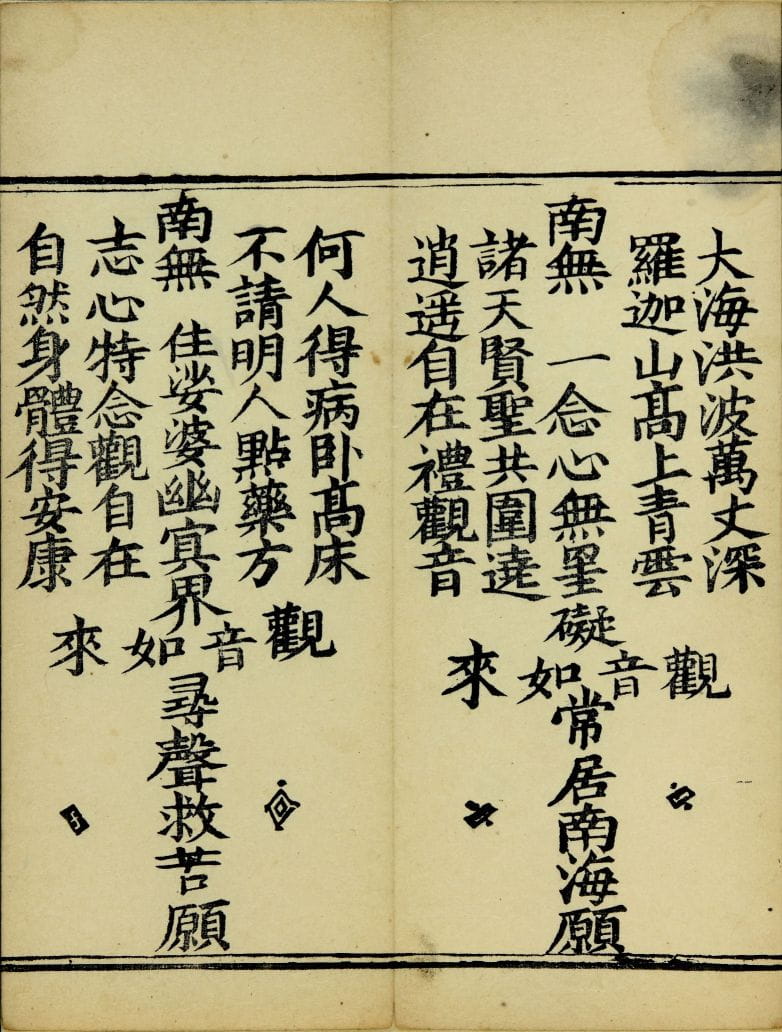 大海洪波萬丈深
羅迦山髙上青雲
南無 一念心無罣礙 常居南海願
諸天賢聖共圍遶
逍遥自在禮觀音
觀音如來
何人得病卧髙床
不請明人點藥方
南無 住娑婆幽㝠界 尋聲救苦願
志心特念觀自在
自然身體得安康
觀音如來